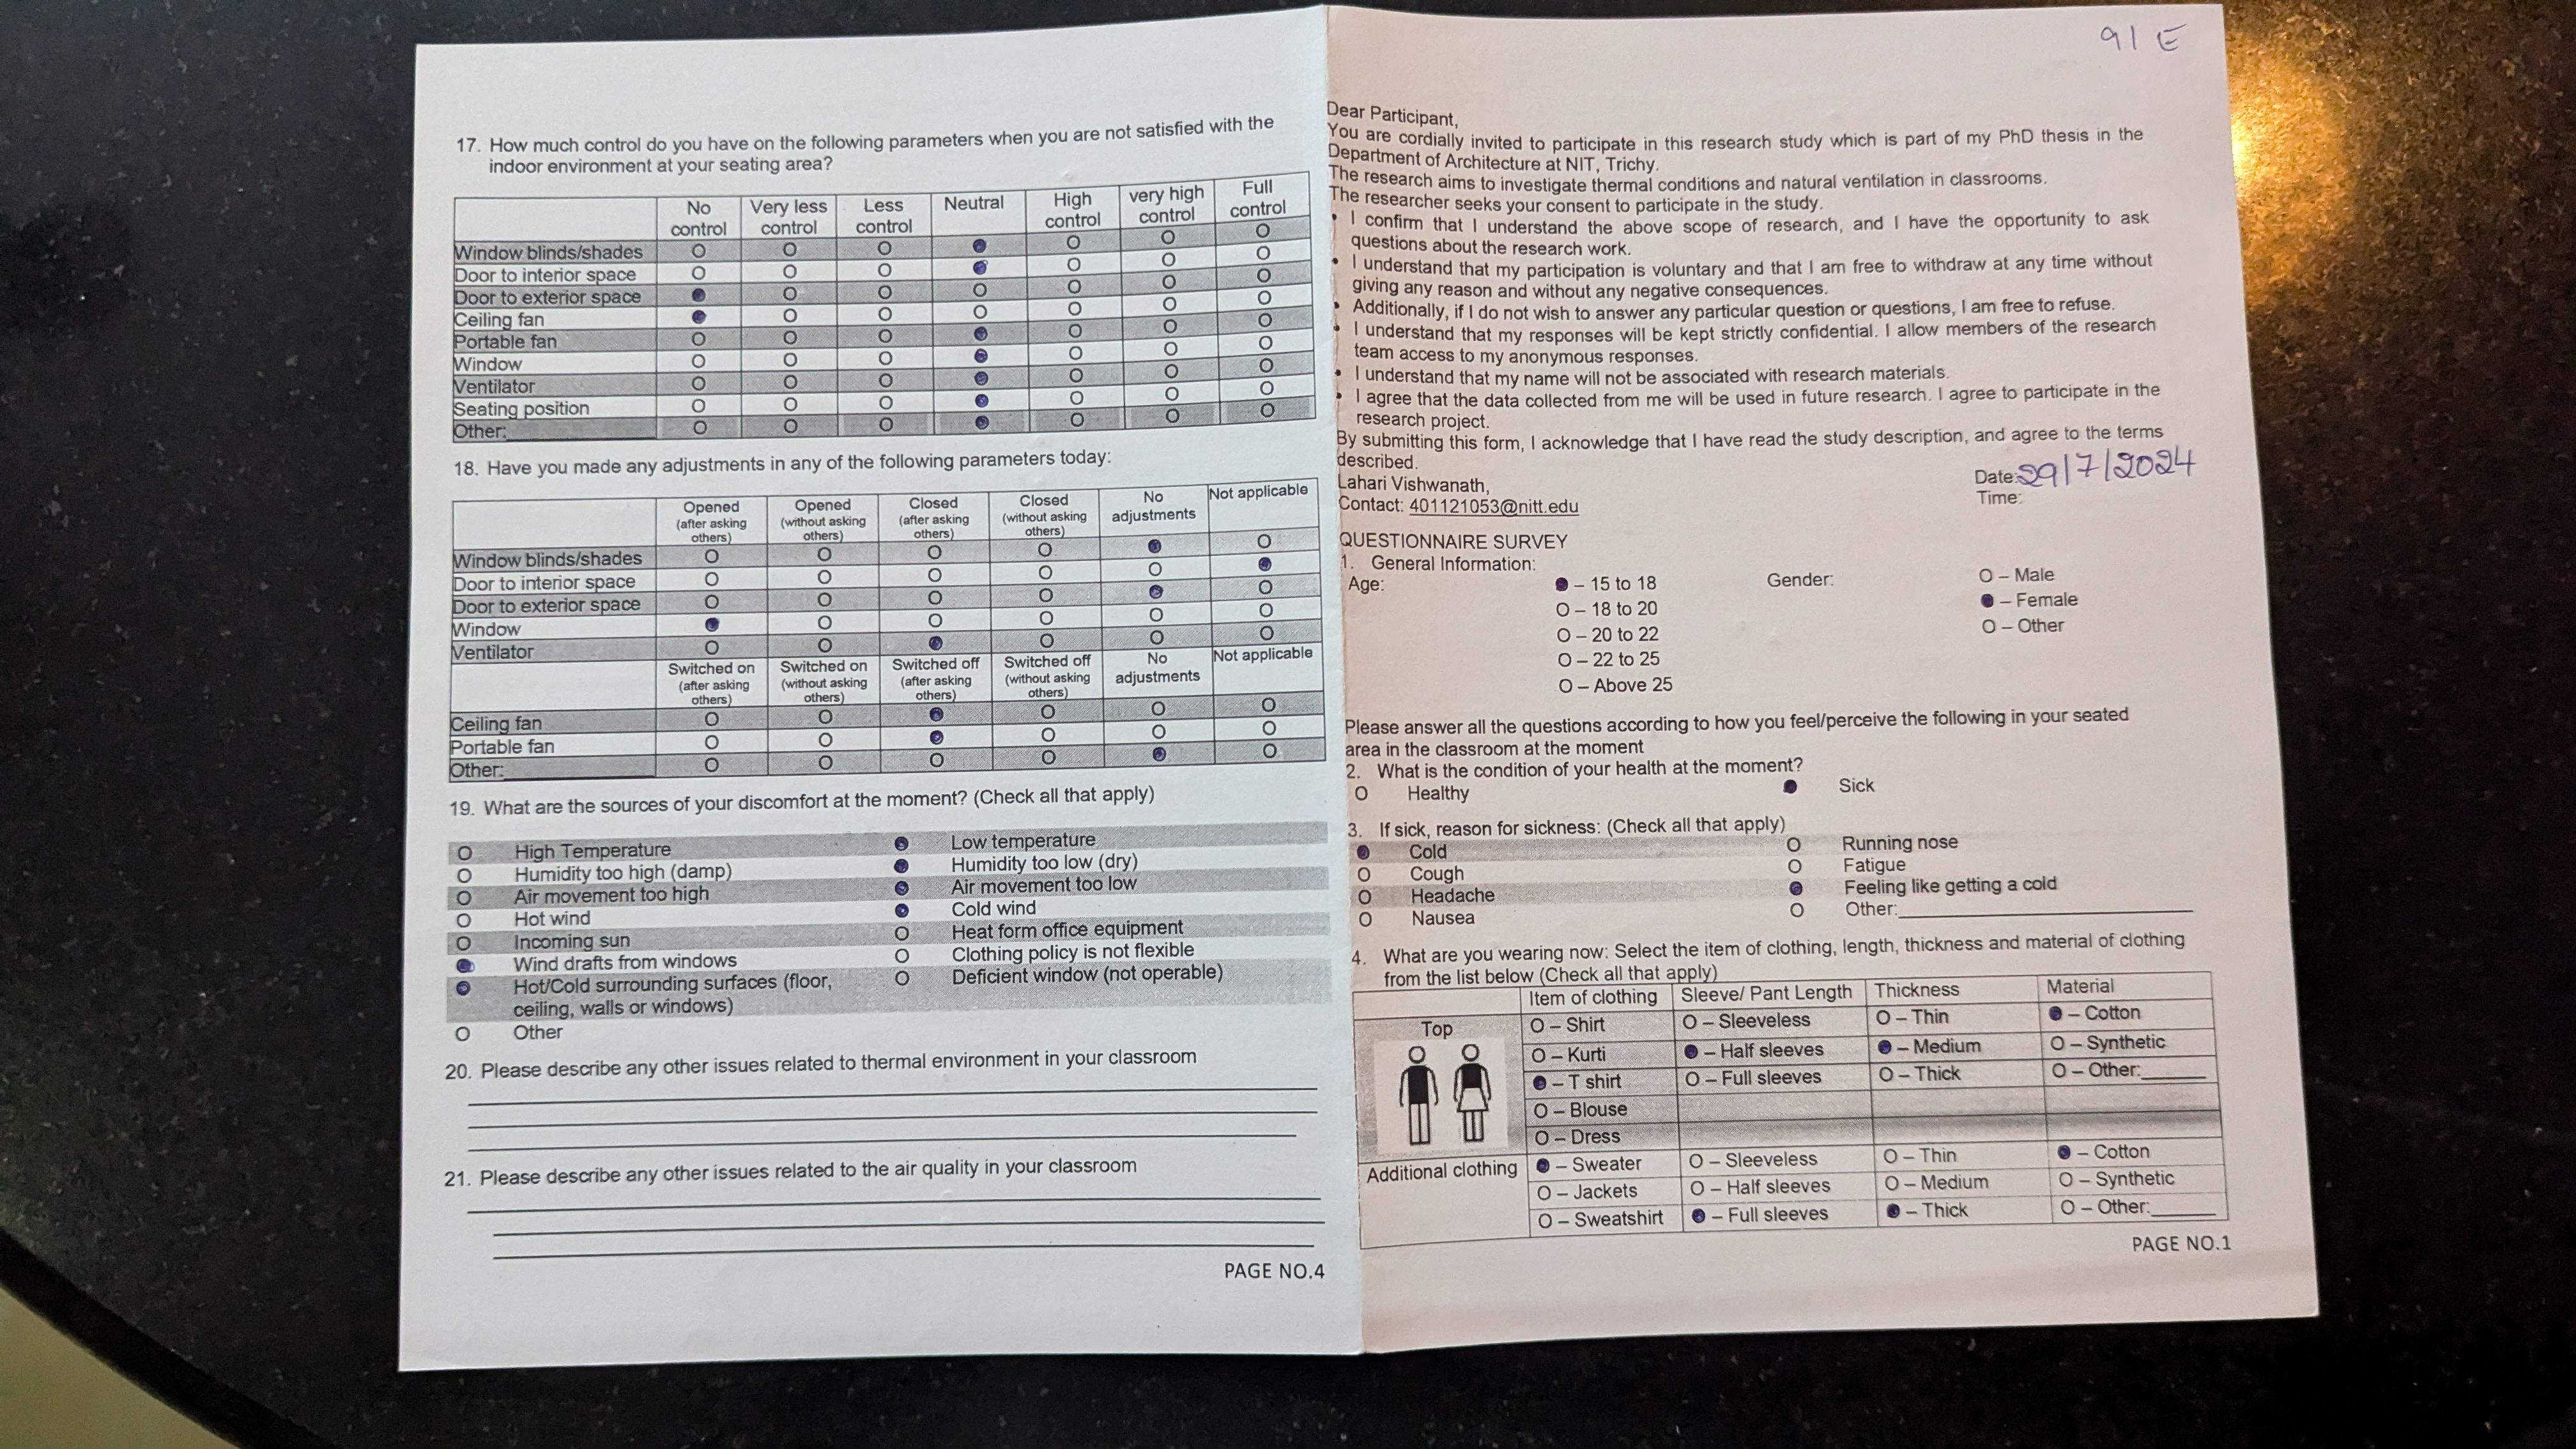 17. How much control do you have on the following parameters when you are not satisfied with the
indoor environment at your seating area?
No control Very less control Less control Neutral High control very high control Full control
Window blinds/shades O O O ● O O O
Door to interior space O O O ● O O O
Door to exterior space ● O O O O O O
Ceiling fan ● O O O O O O
Portable fan O O O ● O O O
Window O O O ● O O O
Ventilator O O O ● O O O
Seating position O O O ● O O O
Other: O O O ● O O O
18. Have you made any adjustments in any of the following parameters today:
Opened (after asking others) Opened (without asking others) Closed (after asking others) Closed (without asking others) No adjustments Not applicable
Window blinds/shades O O O O ● O
Door to interior space O O O O O ●
Door to exterior space O O O O ● O
Window ● O O O O O
Ventilator O O ● O O O
Switched on (after asking others) Switched on (without asking others) Switched off (after asking others) Switched off (without asking others) No adjustments Not applicable
Ceiling fan O O ● O O O
Portable fan O O ● O O O
Other: O O O O ● O
19. What are the sources of your discomfort at the moment? (Check all that apply)
O High Temperature ● Low temperature
O Humidity too high (damp) ● Humidity too low (dry)
O Air movement too high ● Air movement too low
O Hot wind ● Cold wind
O Incoming sun O Heat form office equipment
● Wind drafts from windows O Clothing policy is not flexible
● Hot/Cold surrounding surfaces (floor, O Deficient window (not operable)
ceiling, walls or windows)
O Other
20. Please describe any other issues related to thermal environment in your classroom
21. Please describe any other issues related to the air quality in your classroom
PAGE NO.4
91 E
Dear Participant,
You are cordially invited to participate in this research study which is part of my PhD thesis in the
Department of Architecture at NIT, Trichy.
The research aims to investigate thermal conditions and natural ventilation in classrooms.
The researcher seeks your consent to participate in the study.
• I confirm that I understand the above scope of research, and I have the opportunity to ask
questions about the research work.
• I understand that my participation is voluntary and that I am free to withdraw at any time without
giving any reason and without any negative consequences.
• Additionally, if I do not wish to answer any particular question or questions, I am free to refuse.
• I understand that my responses will be kept strictly confidential. I allow members of the research
team access to my anonymous responses.
• I understand that my name will not be associated with research materials.
• I agree that the data collected from me will be used in future research. I agree to participate in the
research project.
By submitting this form, I acknowledge that I have read the study description, and agree to the terms
described.
Lahari Vishwanath,
Contact: 401121053@nitt.edu
Date: 29/7/2024
Time:
QUESTIONNAIRE SURVEY
1. General Information:
Age: ● – 15 to 18 Gender: O – Male
O – 18 to 20 ● – Female
O – 20 to 22 O – Other
O – 22 to 25
O – Above 25
Please answer all the questions according to how you feel/perceive the following in your seated
area in the classroom at the moment
2. What is the condition of your health at the moment?
O Healthy ● Sick
3. If sick, reason for sickness: (Check all that apply)
● Cold O Running nose
O Cough O Fatigue
O Headache ● Feeling like getting a cold
O Nausea O Other:
4. What are you wearing now: Select the item of clothing, length, thickness and material of clothing
from the list below (Check all that apply)
Item of clothing Sleeve/ Pant Length Thickness Material
Top O – Shirt O – Sleeveless O – Thin ● – Cotton
O – Kurti ● – Half sleeves ● – Medium O – Synthetic
● – T shirt O – Full sleeves O – Thick O – Other:
O – Blouse
O – Dress
Additional clothing ● – Sweater O – Sleeveless O – Thin ● – Cotton
O – Jackets O – Half sleeves O – Medium O – Synthetic
O – Sweatshirt ● – Full sleeves ● – Thick O – Other:
PAGE NO.1